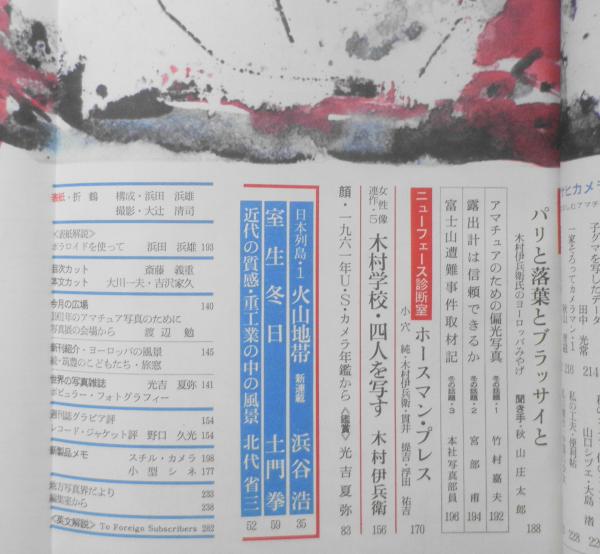 パリと落葉とブラッサイと
木村伊兵衛氏のヨーロッパみやげ 聞き手・秋山庄太郎 188
アマチュアのための偏光写真 冬の話題・1 竹村嘉夫 192
露出計は信頼できるか 冬の話題・2 宮部甫 194
富士山遭難事件取材記 冬の話題・3 本社写真部員 196
ニューフェース診断室 ホースマン・プレス
小穴純・木村伊兵衛・貫井提吉・浮田祐吉 170
女性像連作・5 木村学校・四人を写す 木村伊兵衛 156
顔・一九六一年U・S・カメラ年鑑から 《鑑賞》 光吉夏弥 83
日本列島・1 火山地帯 新連載 浜谷浩 35
室生冬日 土門拳 59
近代の質感・重工業の中の風景 北代省三 52
表紙・折鶴 構成・浜田浜雄
撮影・大辻清司
《表紙解説》
ポラロイドを使って 浜田浜雄 193
目次カット 斎藤義重
本文カット 大川一夫・吉沢家久
今月の広場 140
1961年のアマチュア写真のために
写真展の会場から 渡辺勉
新刊紹介・ヨーロッパの風景 145
続・筑豊のこどもたち・旅窓
世界の写真雑誌 光吉夏弥 141
ポピュラー・フォトグラフィー
週刊誌グラビア評 154
レコード・ジャケット評 野口久光 154
新製品メモ スチル・カメラ 198
小型シネ 177
地方写真界だより 233
編集室から 238
《英文解説》 To Foreign Subscribers 282
子グマを写したデータ
田中光常 216
一家そろってカメラマン・1
214
私の工夫・便利帖
山口シヅエ・大島渚
228